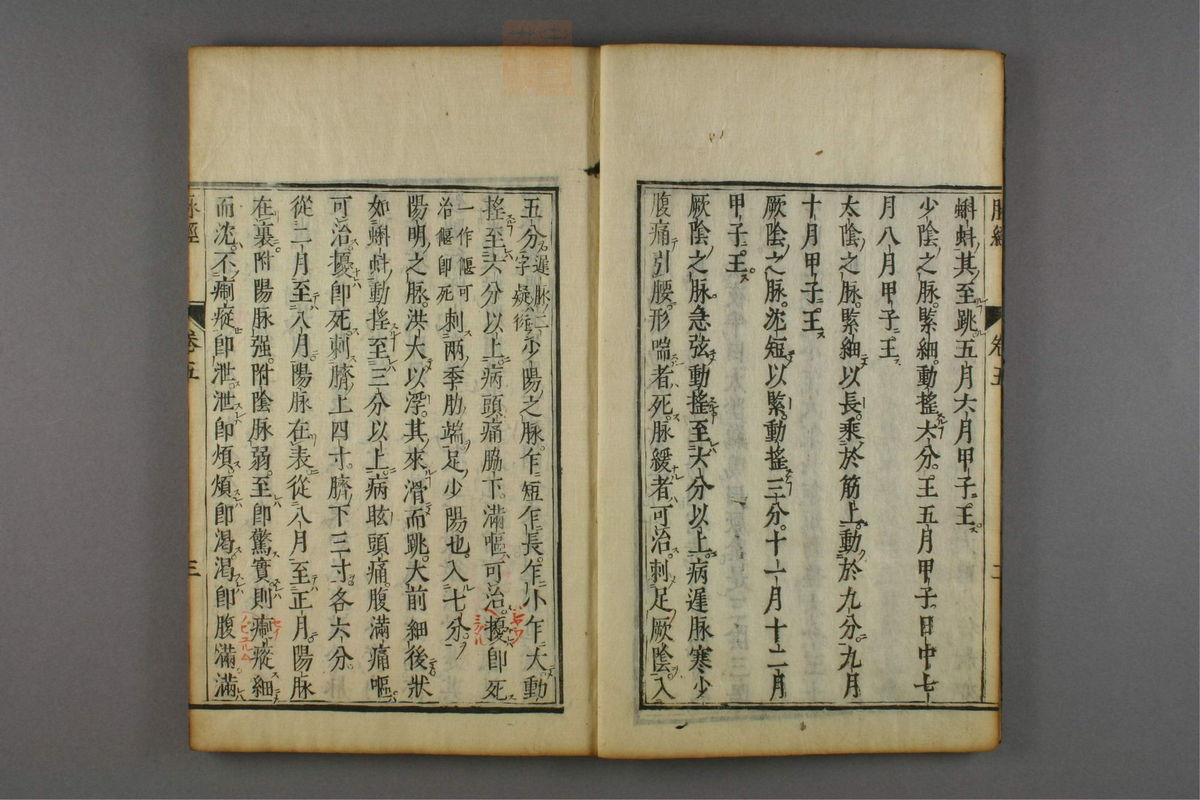 蝌蚪其至跳五月六月甲子王
少陰之脉緊細動搖六分王五月甲子日中七
月八月甲子王
太陰之脉緊細以長乘於筋上動於九分九月
十月甲子王
厥陰之脉沈短以緊動搖三分十一月十二月
甲子王
厥陰之脉急弦動搖至六分以上病遲脉寒少
腹痛引腰形喘者死脉緩者可治刺足厥陰入
脉經 卷五 三
五分遲脉二字疑衍少陽之脉乍短乍長乍小乍大動
搖至六分以上病頭痛脇下滿嘔可治擾即死
一作傴可治傴即死刺兩季肋端足少陽也入七分
陽明之脉洪大以浮其來滑而跳大前細後狀
如蝌蚪動搖至三分以上病眩頭痛腹滿痛嘔
可治擾即死刺臍上四寸臍下三寸各六分
從二月至八月陽脉在表從八月至正月陽脉
在裏附陽脉强附陰脉弱至即驚實則瘈瘲細
而沈不瘈瘲即泄泄即煩煩即渴渴即腹滿滿